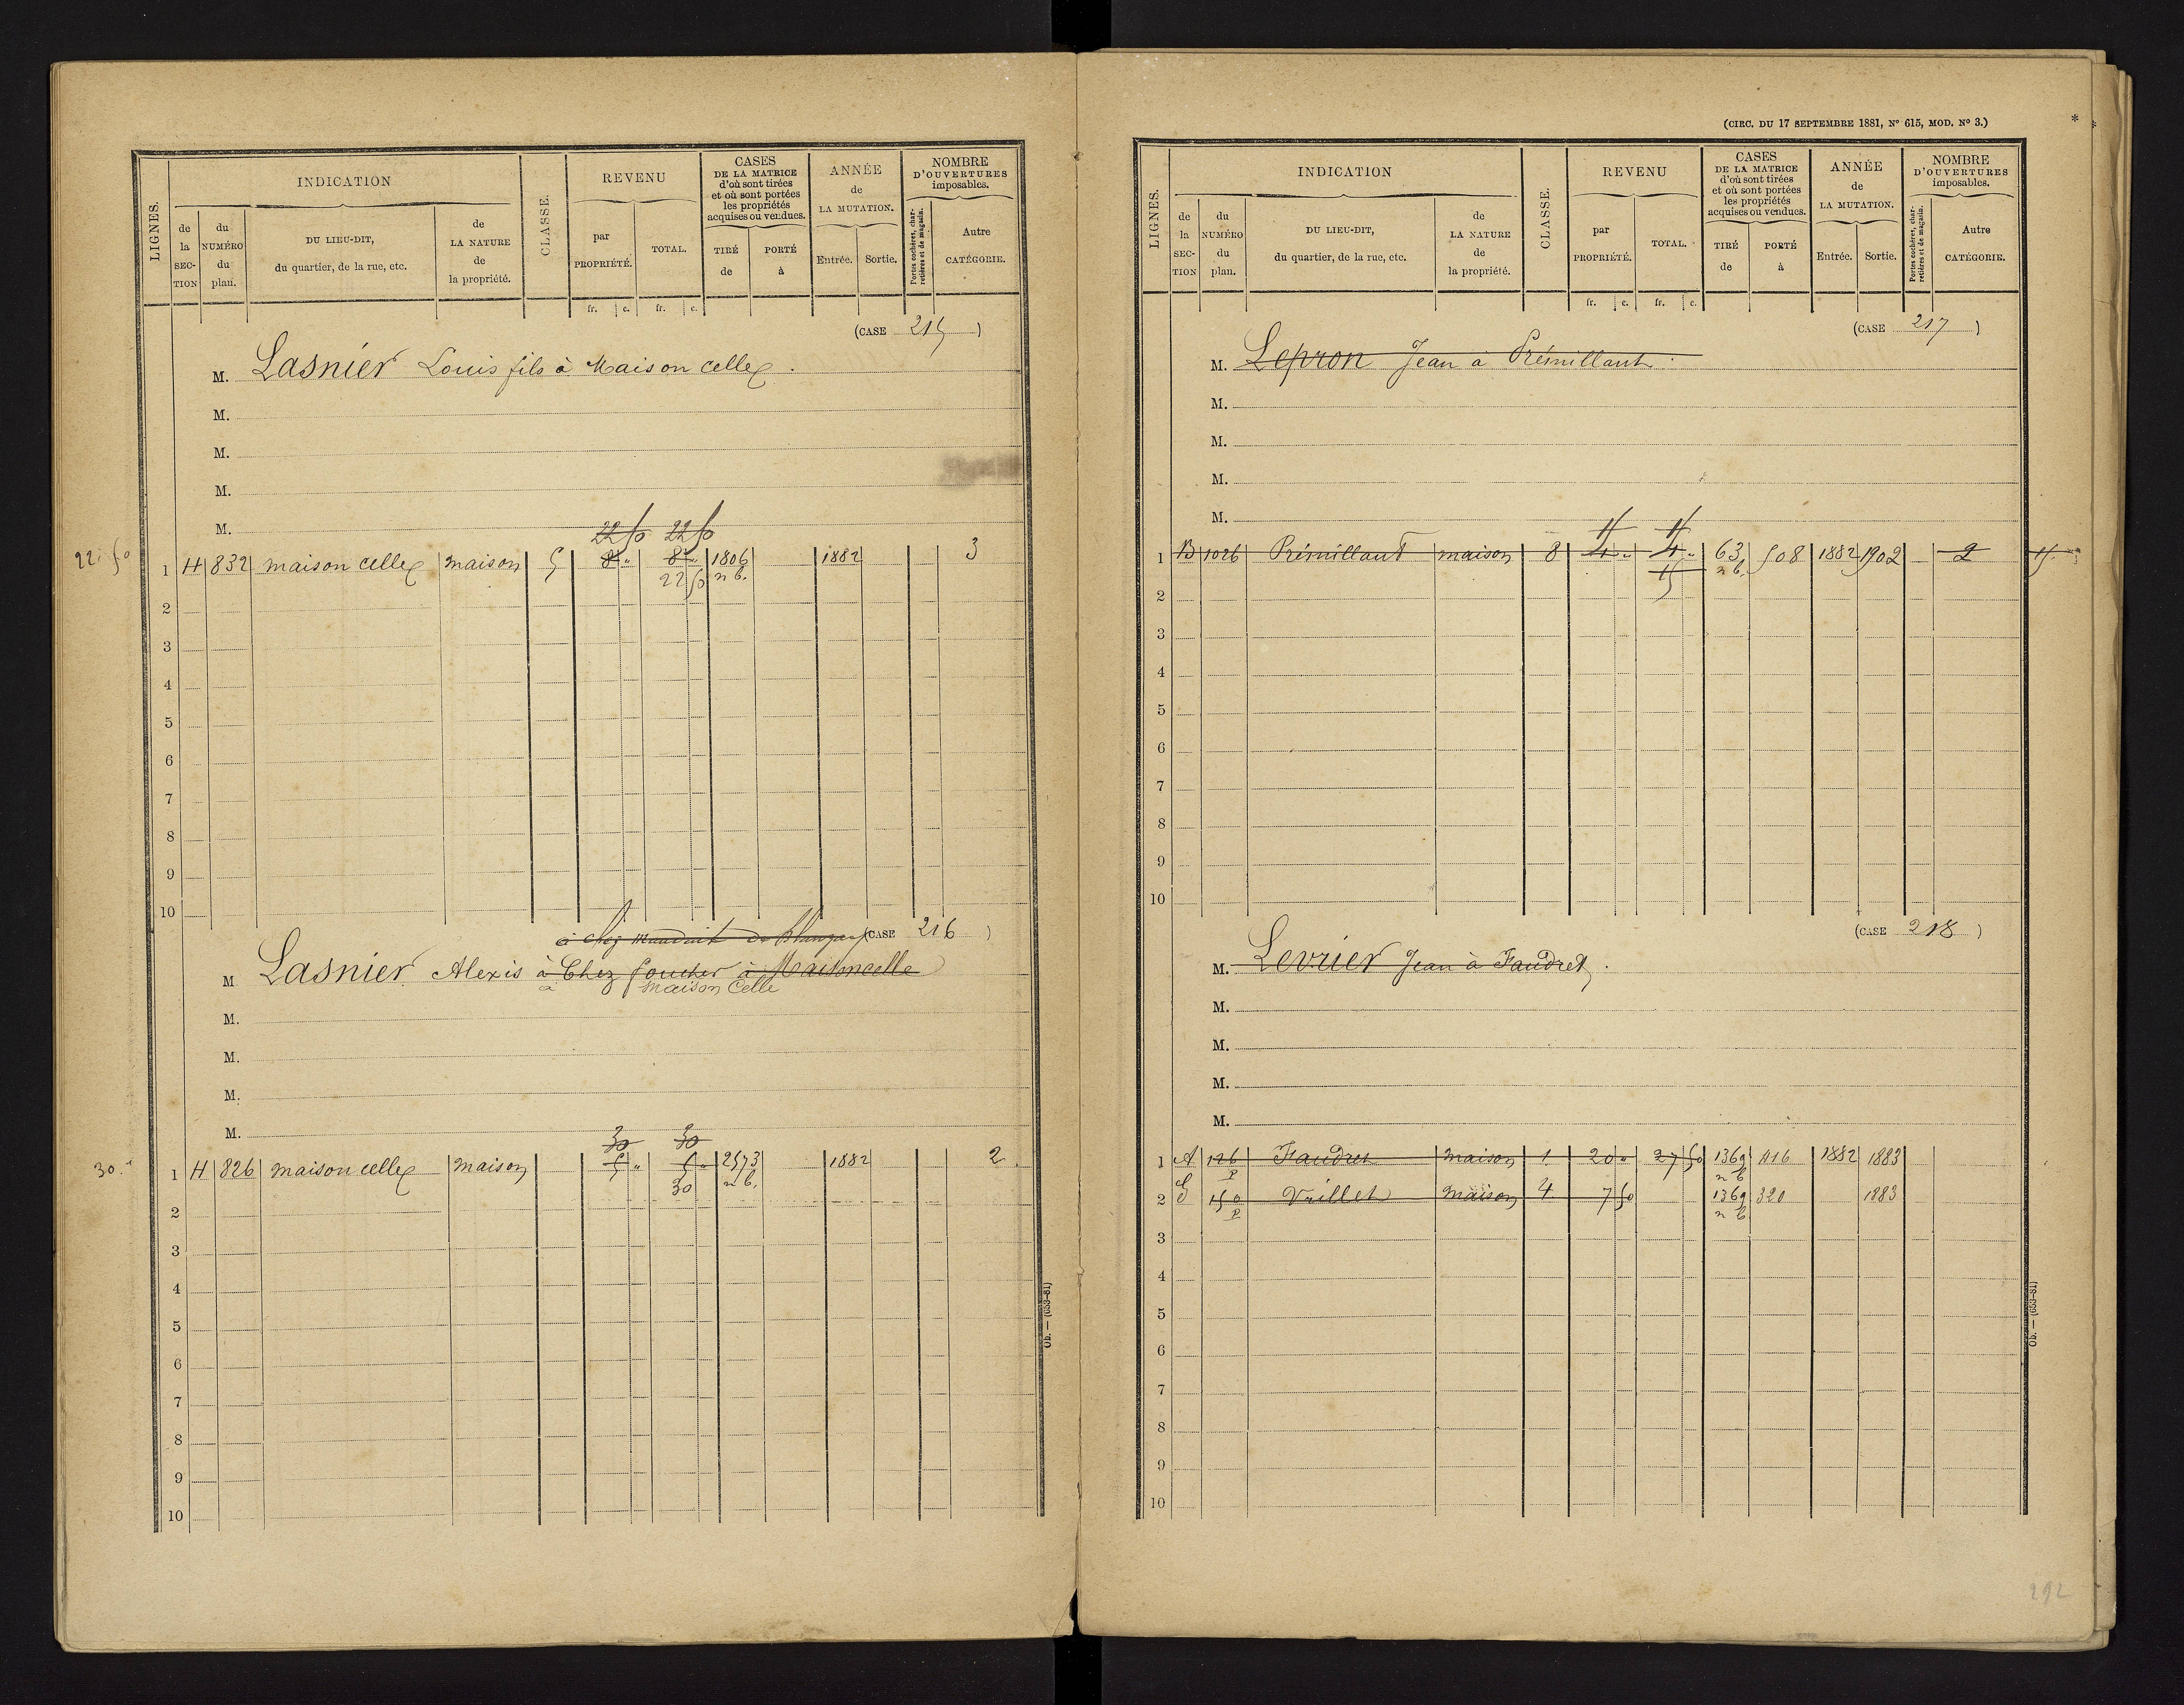 LIGNES.
INDICATION
de la SECTION
du NUMÉRO du plan.
DU LIEU-DIT, du quartier, de la rue, etc.
de LA NATURE de la propriété.
CLASSE.
REVENU
par PROPRIÉTÉ.
TOTAL.
fr. c. fr. c.
CASES DE LA MATRICE d'où sont tirées et où sont portées les propriétés acquises ou vendues.
TIRÉ de
PORTÉ à
ANNÉE de LA MUTATION.
Entrée.
Sortie.
NOMBRE D'OUVERTURES imposables.
Portes cochères, charretières et de magasin.
Autre CATÉGORIE.
(CASE 215)
M. Lasnier Louis fils à Maison celle
M.
M.
M.
M.
22 50 22 50
22. 50
1 H 832 maison celle maison 5 8 " 8 " 1806 1882 3
22 50 n b.
2
3
4
5
6
7
8
9
10
à chez (CASE 216)
M Lasnier Alexis à Chez foucher à Maisoncelle
à maison Celle
M.
M.
M.
M.
30 30
30. "
1 H 826 maison celle maison 5 " 5 " 2573 1882 2
30 n b.
2
3
4
5
6
7
8
9
10
Ob. — (653-81)
(CIRC. DU 17 SEPTEMBRE 1881, N° 615, MOD. N° 3.)
LIGNES.
INDICATION
de la SECTION
du NUMÉRO du plan.
DU LIEU-DIT, du quartier, de la rue, etc.
de LA NATURE de la propriété.
CLASSE.
REVENU
par PROPRIÉTÉ.
TOTAL.
fr. c. fr. c.
CASES DE LA MATRICE d'où sont tirées et où sont portées les propriétés acquises ou vendues.
TIRÉ de
PORTÉ à
ANNÉE de LA MUTATION.
Entrée.
Sortie.
NOMBRE D'OUVERTURES imposables.
Portes cochères, charretières et de magasin.
Autre CATÉGORIE.
(CASE 217)
M. Lepron Jean à Prémillant
M.
M.
M.
M.
15 15
1 B 1026 Prémillant maison 8 4 " 4 " 63 508 1882 1902 2 15
15 n b.
2
3
4
5
6
7
8
9
10
(CASE 218)
M. Levrier Jean à Faudret
M.
M.
M.
M.
1 A 126 Faudret maison 1 20 " 27 50 1369 116 1882 1883
p n b
2 G 150 Vaillet maison 4 7 50 1369 320 1883
p n b
3
4
5
6
7
8
9
10
Ob. — (653-81)
292